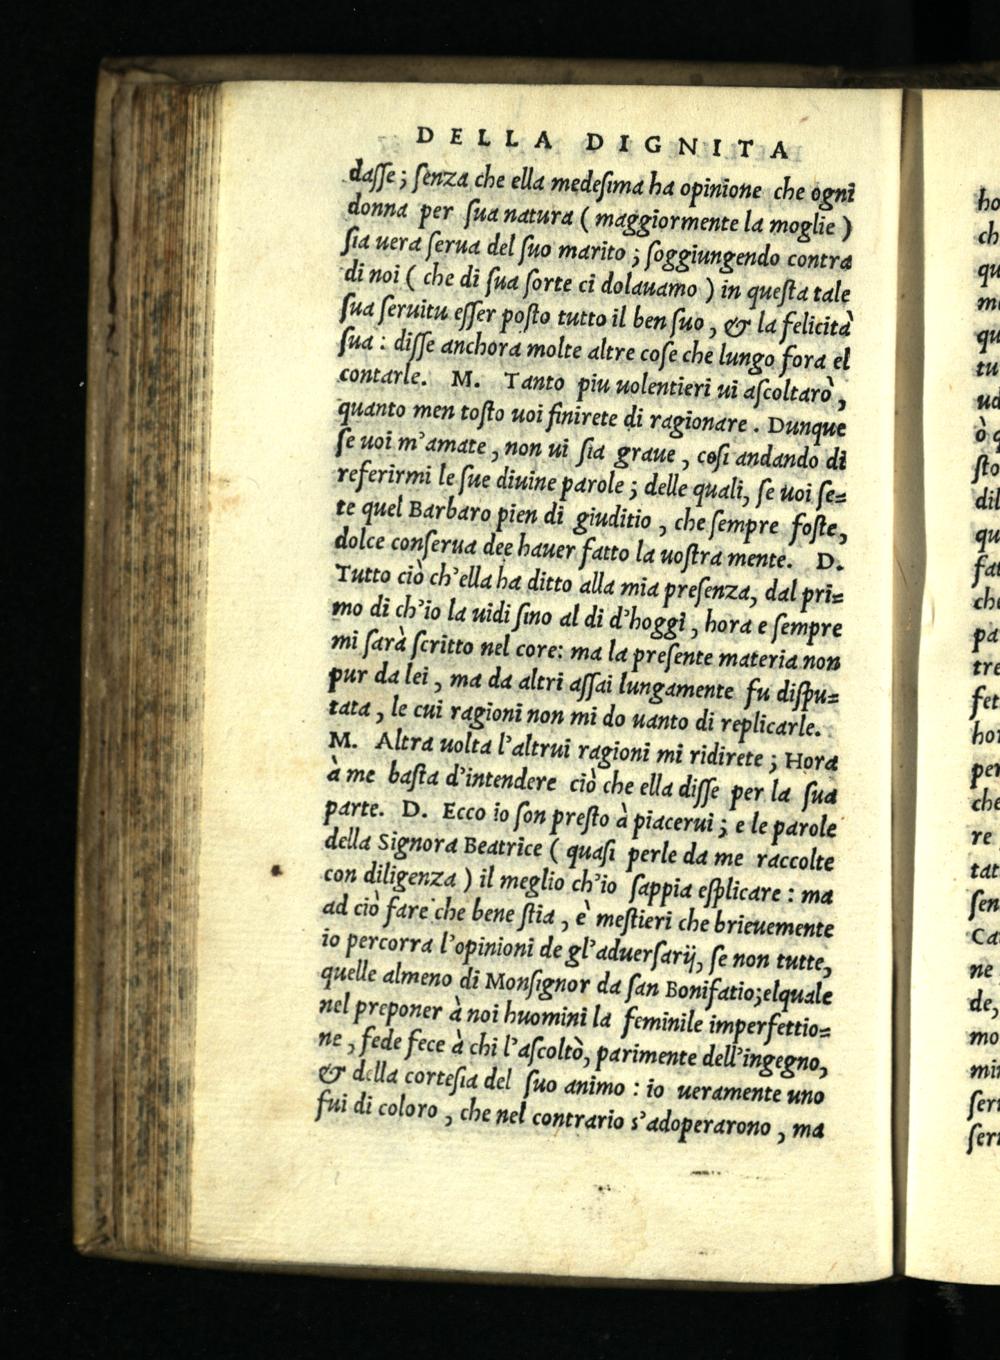 DELLA DIGNITA
daſſe; ſenza che ella medeſima ha opinione che ogni
donna per ſua natura (maggiormente la moglie)
ſia uera ſerua del ſuo marito; ſoggiungendo contra
di noi (che di ſua ſorte ci dolauamo) in queſta tale
ſua ſeruitu eſſer poſto tutto il ben ſuo, & la felicità
ſua: diſſe anchora molte altre coſe che lungo fora el
contarle. M. Tanto piu uolentieri ui aſcoltarò,
quanto men toſto uoi finirete di ragionare. Dunque
ſe uoi m'amate, non ui ſia graue, coſi andando di
referirmi le ſue diuine parole; delle quali, ſe uoi ſe=
te quel Barbaro pien di giuditio, che ſempre foſte,
dolce conſerua dee hauer fatto la uoſtra mente. D.
Tutto ciò ch'ella ha ditto alla mia preſenza, dal pri=
mo dì ch'io la uidi ſino al di d'hoggi, hora e ſempre
mi ſarà ſcritto nel core: ma la preſente materia non
pur da lei, ma da altri aſſai lungamente fu diſpu=
tata, le cui ragioni non mi do uanto di replicarle.
M. Altra uolta l'altrui ragioni mi ridirete; Hora
à me baſta d'intendere ciò che ella diſſe per la ſua
parte. D. Ecco io ſon preſto à piacerui; e le parole
della Signora Beatrice (quaſi perle da me raccolte
con diligenza) il meglio ch'io ſappia eſplicare: ma
ad ciò fare che bene ſtia, è meſtieri che brieuemente
io percorra l'opinioni de gl'aduerſarij, ſe non tutte,
quelle almeno di Monſignor da ſan Bonifatio; elquale
nel preponer à noi huomini la feminile imperfettio=
ne, fede fece à chi l'aſcoltò, parimente dell'ingegno,
& della corteſia del ſuo animo: io ueramente uno
fui di coloro, che nel contrario s'adoperarono, ma
ho
ch
qu
me
qu
tu
ud
ò q
ſto
dil
qu
fat
che
pa
tre
fet
hor
per
che
re
tat
ſen
Ca
ne
de,
mo
min
ſeru
ſeru